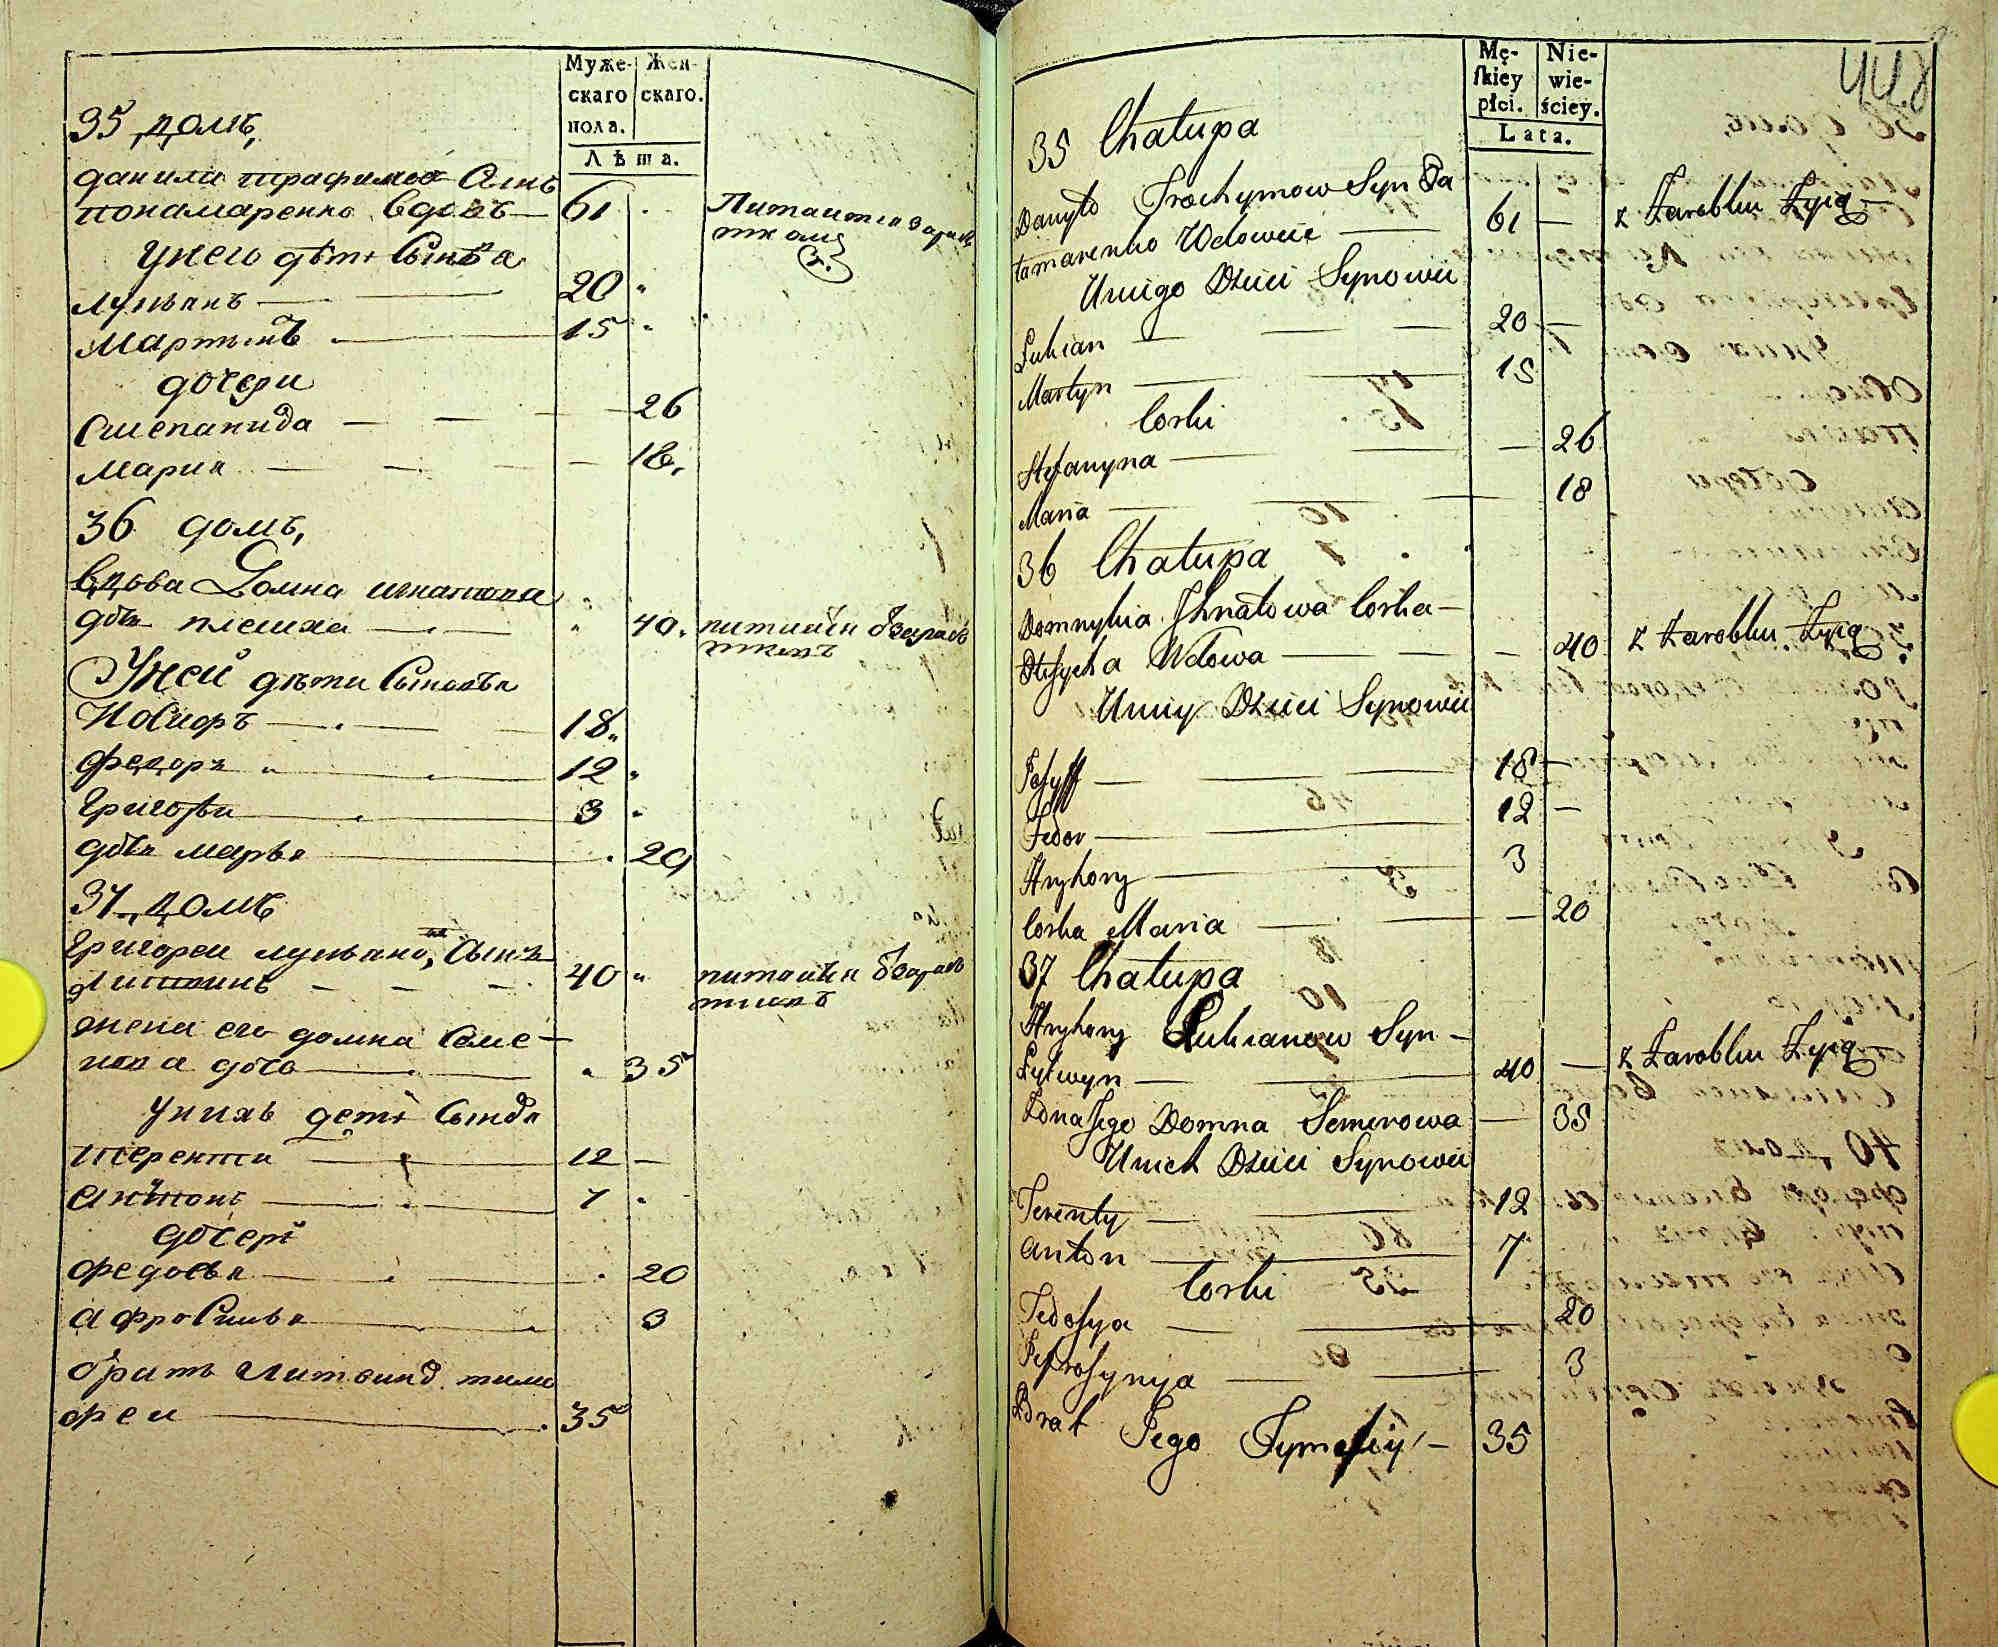 Муже-
скаго
пола.
Жен-
скаго.
Лѣта.
35 домъ,
данила трафимов Сынъ
понамаренко вдовъ — 61
Питаитса зараб
ткомъ
Унего дѣти Сынова
лукьянъ — 20
Мартынъ — 15
дочери
Степанида — 26
Мария — 18.
36 домъ,
вдова Домна игнатова
дочь плешха — 40.
питаийся Зараб
ткомъ
Уней дѣти Сыновья
Иосифъ — 18
федоръ — 12
Григори — 3
дочь марья — 20
37 домъ
Григореи лукьяно, Сынъ
Литвинъ — 40
питаийся Зараб
ткомъ
жена его домна Семе-
нова дочь — 35
Унихъ дети Сынова
терентии — 12 —
антонъ — 7
дочери
федосья — 20
афросинья — 3
братъ Литвина тимо
феи — 35
448
Mę-
skiey
płci.
Nie-
wie-
ściey.
Lata.
35 Chatupa
Danyło Trochymow Syn Pa
tamarenko Wdowiec — 61 —
z Zarobku Zyią
Uniego Dzieci Synowie
Łukian — 20 —
Martyn — 15
Corki
Stefanyna — 26
Maria — 18
36 Chatupa
Domnykia Jhnatowa Corka —
Wdowa — 40
z Zarobku Zyią
Uniey Dzieci Synowie
Josyff — 18 —
Fedor — 12 —
Hryhory — 3
Corka Maria — 20
37 Chatupa
Hryhory Łukianow Syn —
Łytwyn — 40 —
z Zarobku Zyią
Zona Jego Domna Semenowa — 35
Unich Dzieci Synowie
Terenty — 12
Anton — 7
Corki
Fedosya — 20
Jefrosynya — 3
Brat Jego Tymofiy — 35